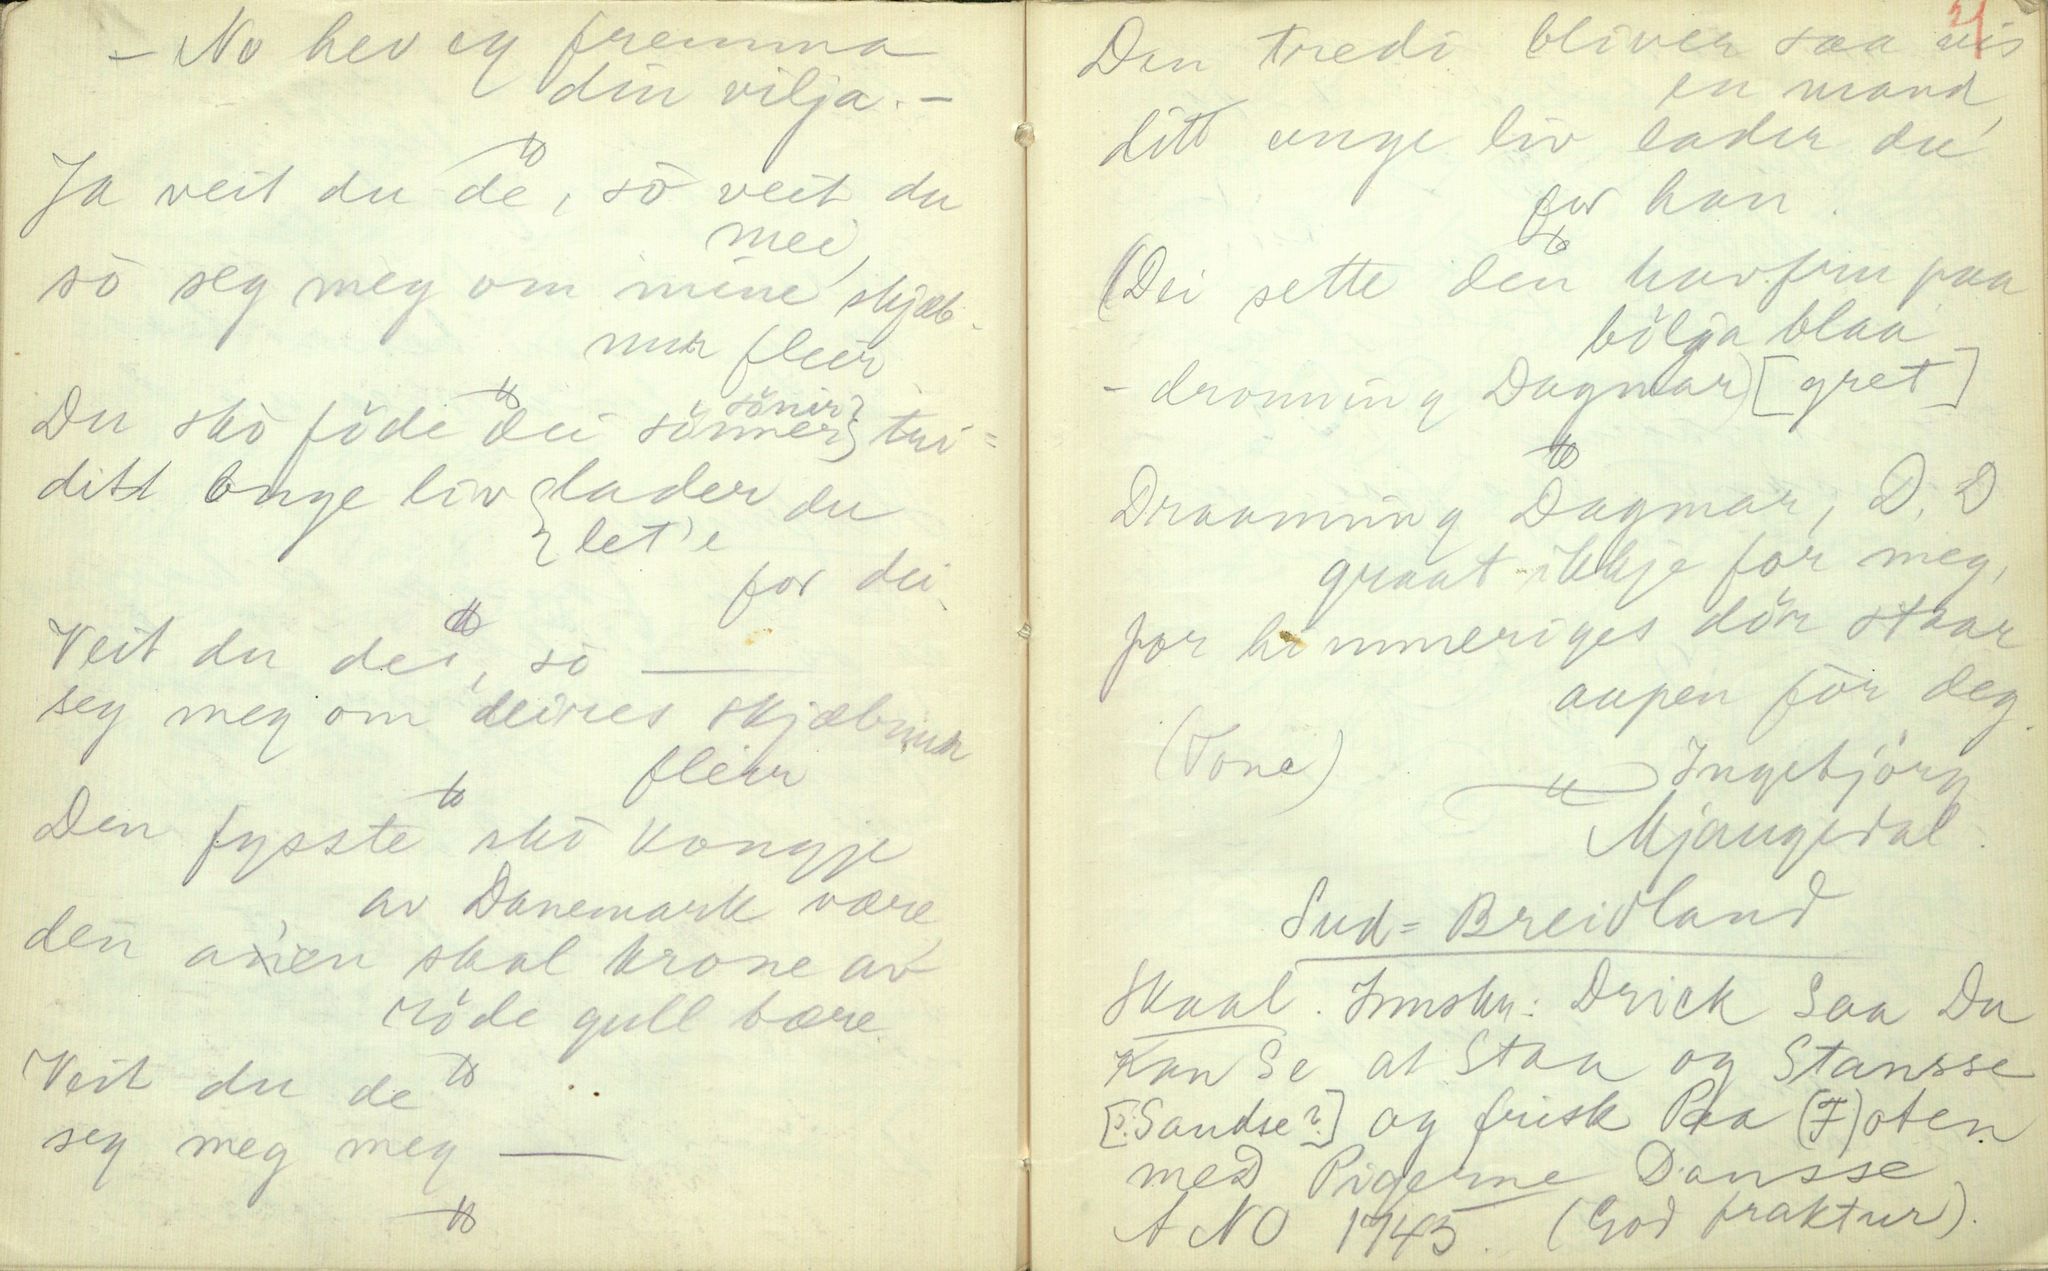 - No hev eg fremma
din vilja. -
Ja veit du de, sò veit du
mei,
sò seg meg om mine skjæb-
nur fleir
Du skò föde dei söner } tri =
sönner }
ditt unge liv { lader du
{ let'e
for dei
Veit du dei, sò —
seg meg om deires skjæbnur
fleir
Den fysste skò kongje
av Danemark være,
den a'en skal krone av
röde gull bære.
Veit du de
seg meg meg —
21
Den tredi bliver saa vis
en mand,
ditt unge liv lader du
for han.
(Dei sette den havfru paa
bölgja blaa
- dronning Dagmar) [gret]
Draaning Dagmar, D, D
graat ikkje for meg,
for himmeriges dör staar
aapen för deg.
(Tone) Ingebjörg
Mjaugedal.
Sud = Breidland
Skaal. Innskr: Drick Saa Du
Kan Se at Staa og Stansse
[?: Sandse?] og frisk Paa (F)oten
med Pigerne Dansse
A NO 1745. (God fraktur).